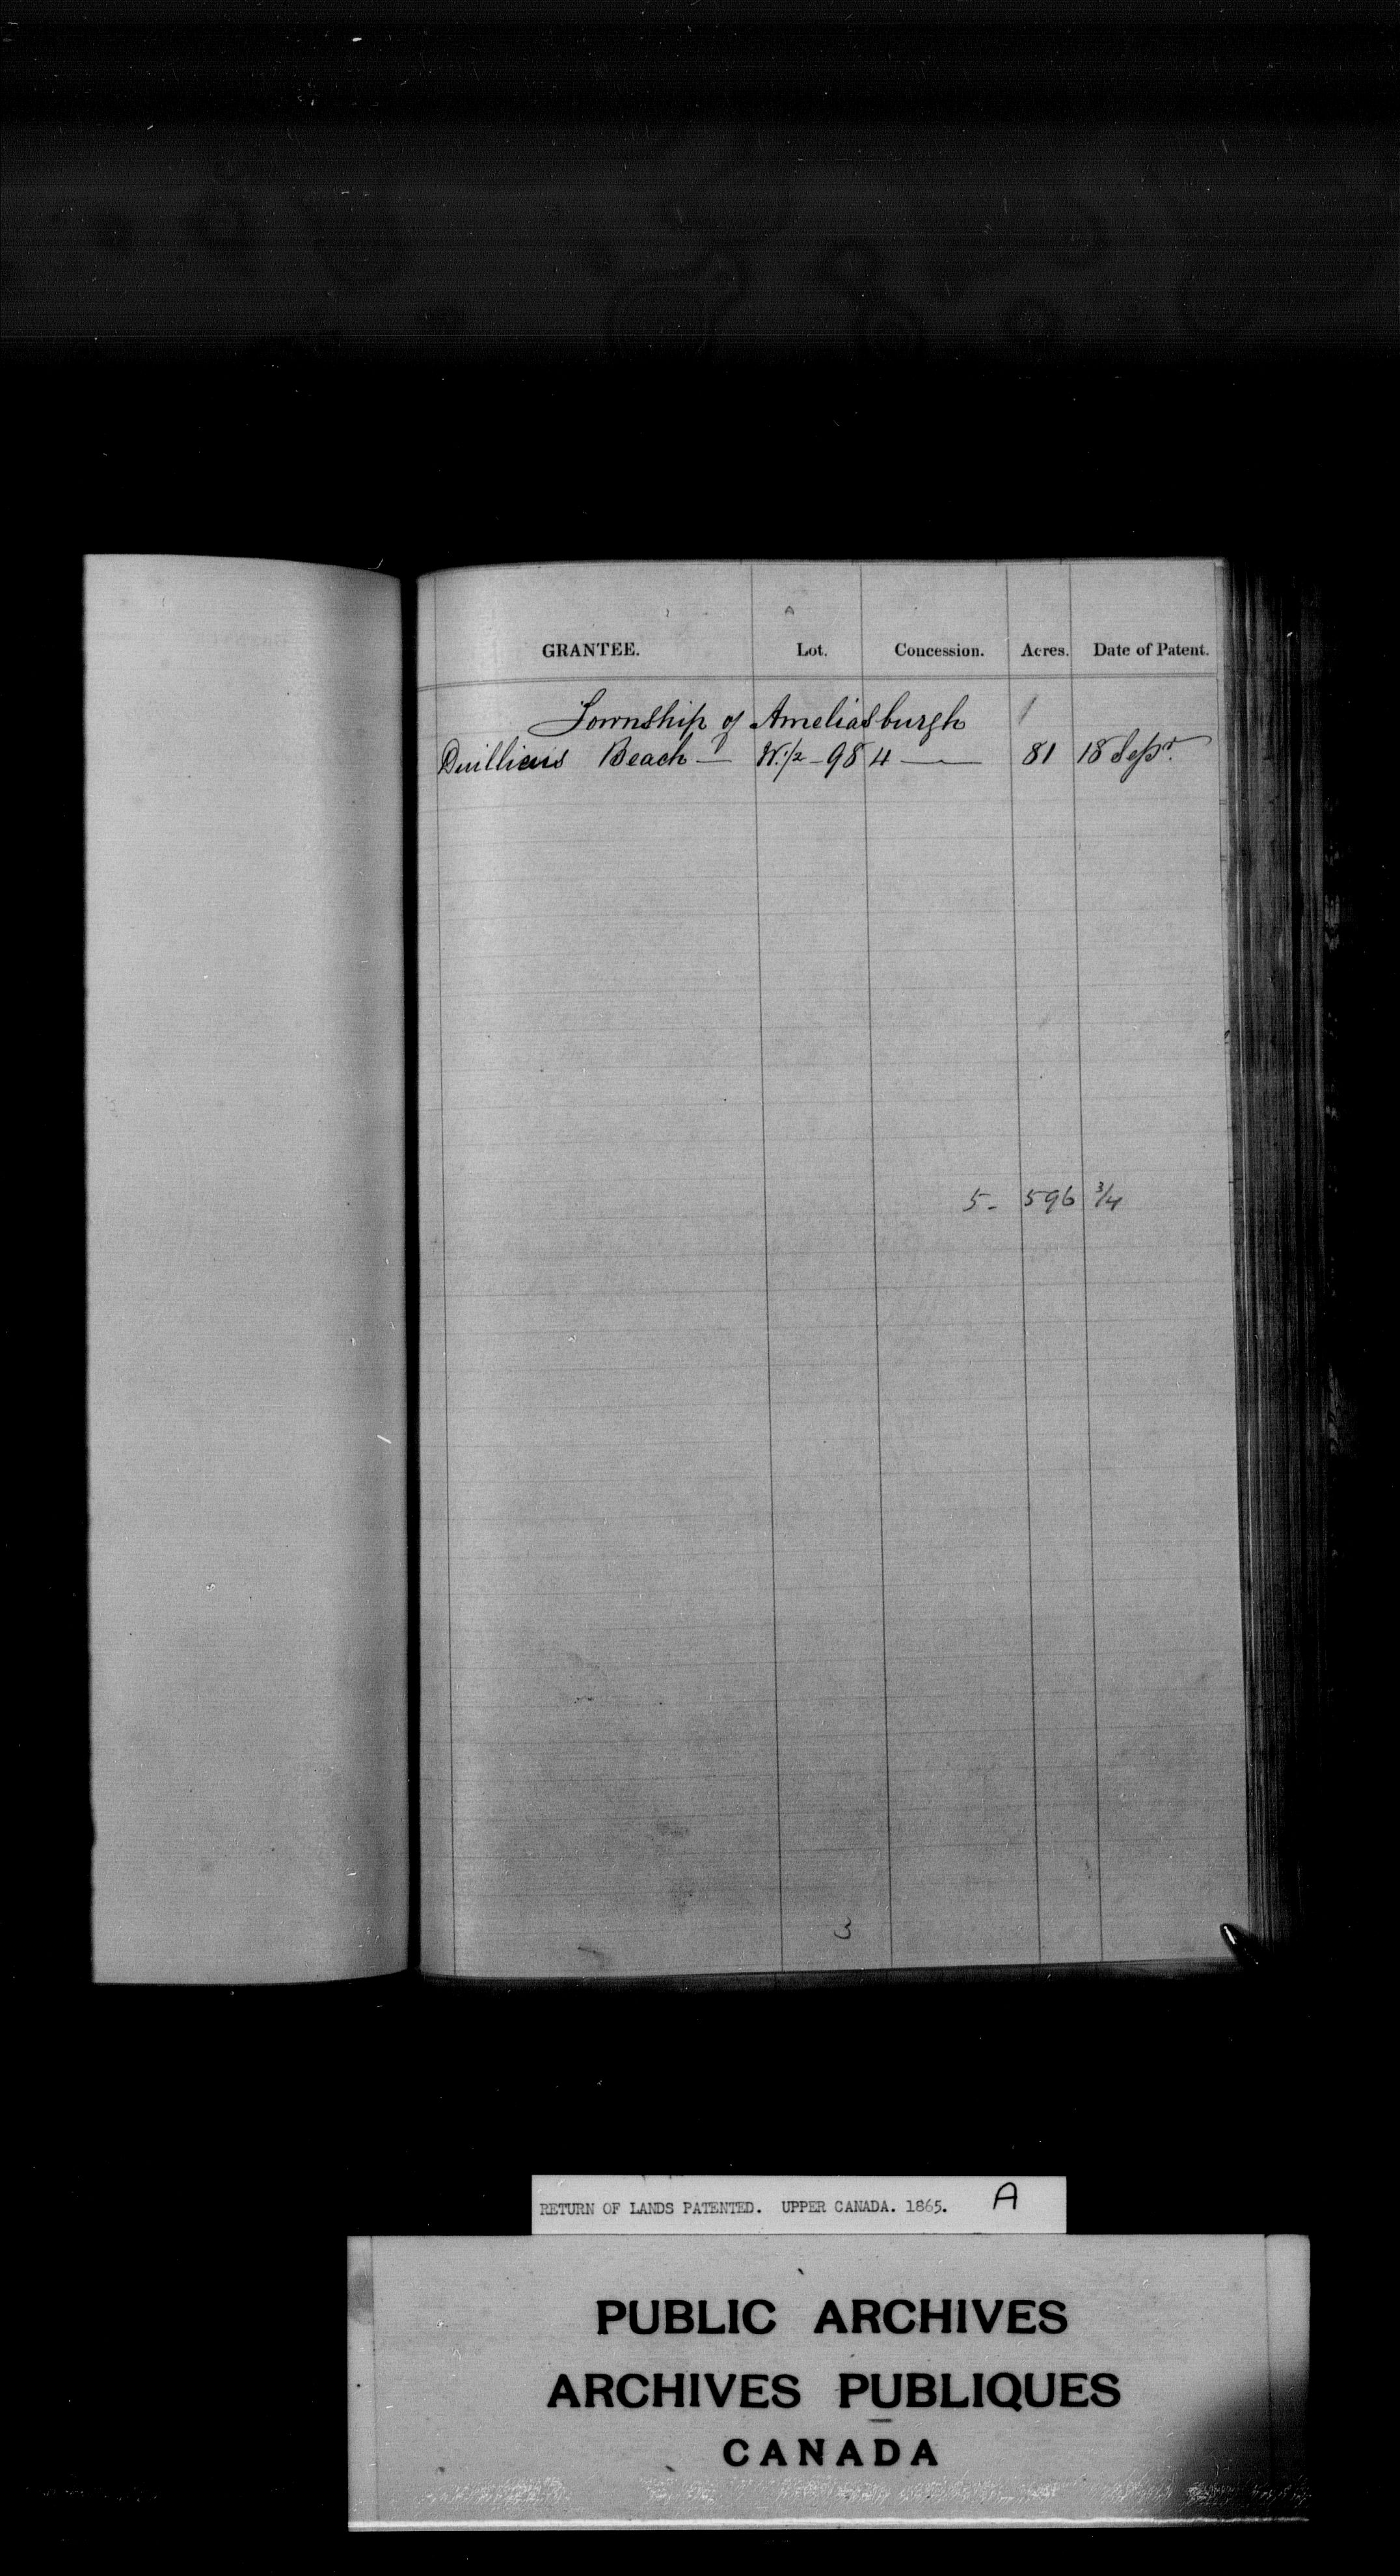 A
GRANTEE. Lot. Concession. Acres. Date of Patent.
Township of Ameliasburgh 1
Beach — W. 1/2 - 98 4 — 81 18 Sepr.
5- 596 3/4
3
RETURN OF LANDS PATENTED. UPPER CANADA. 1865. A
PUBLIC ARCHIVES
ARCHIVES PUBLIQUES
CANADA